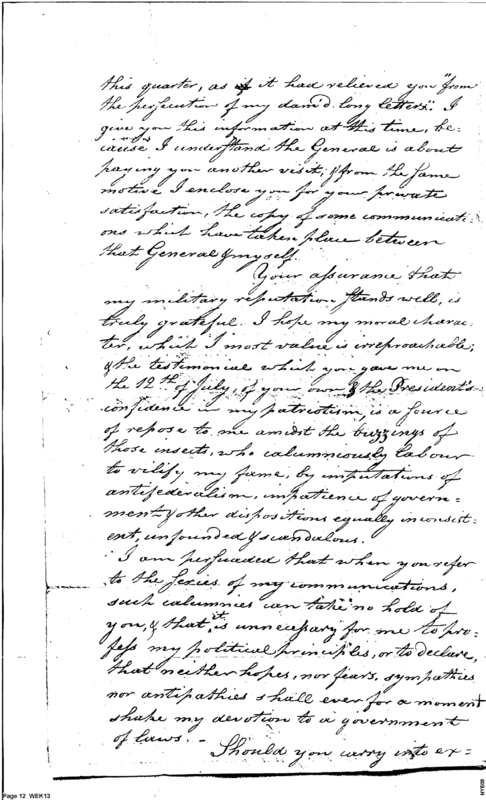 this quarter, as if it had relieved you "from
the persecution of my dam'd. long letters". I
give you this information at this time, be-
cause I understand the General is about
paying you another visit; & from the same
motive I enclose you for your private
satisfaction, the copy of some communicati-
ons which have taken place between
that General & myself.
Your assurance that
my military reputation stands well, is
truly grateful. I hope my moral charac-
ter, which I most value is irreproachable;
& the testimonial which you gave me on
the 12th of July, of your own & the President's
confidence in my patriotism, is a source
of repose to me amidst the buzzings of
those insects, who calumniously labour
to vilify my fame, by imputations of
antifederalism, impatience of govern=
ment & other dispositions equally inconsist-
ent, unfounded & scandalous.
I am persuaded that when you refer
to the series of my communications,
such calumnies can take no hold of
you, & that it is unnecessary for me to pro-
fess my political principles, or to declare,
that neither hopes, nor fears, sympathies
nor antipathies shall ever for a moment
shake my devotion to a government
of laws. -
Should you carry into ex=
Page 12 WEK13